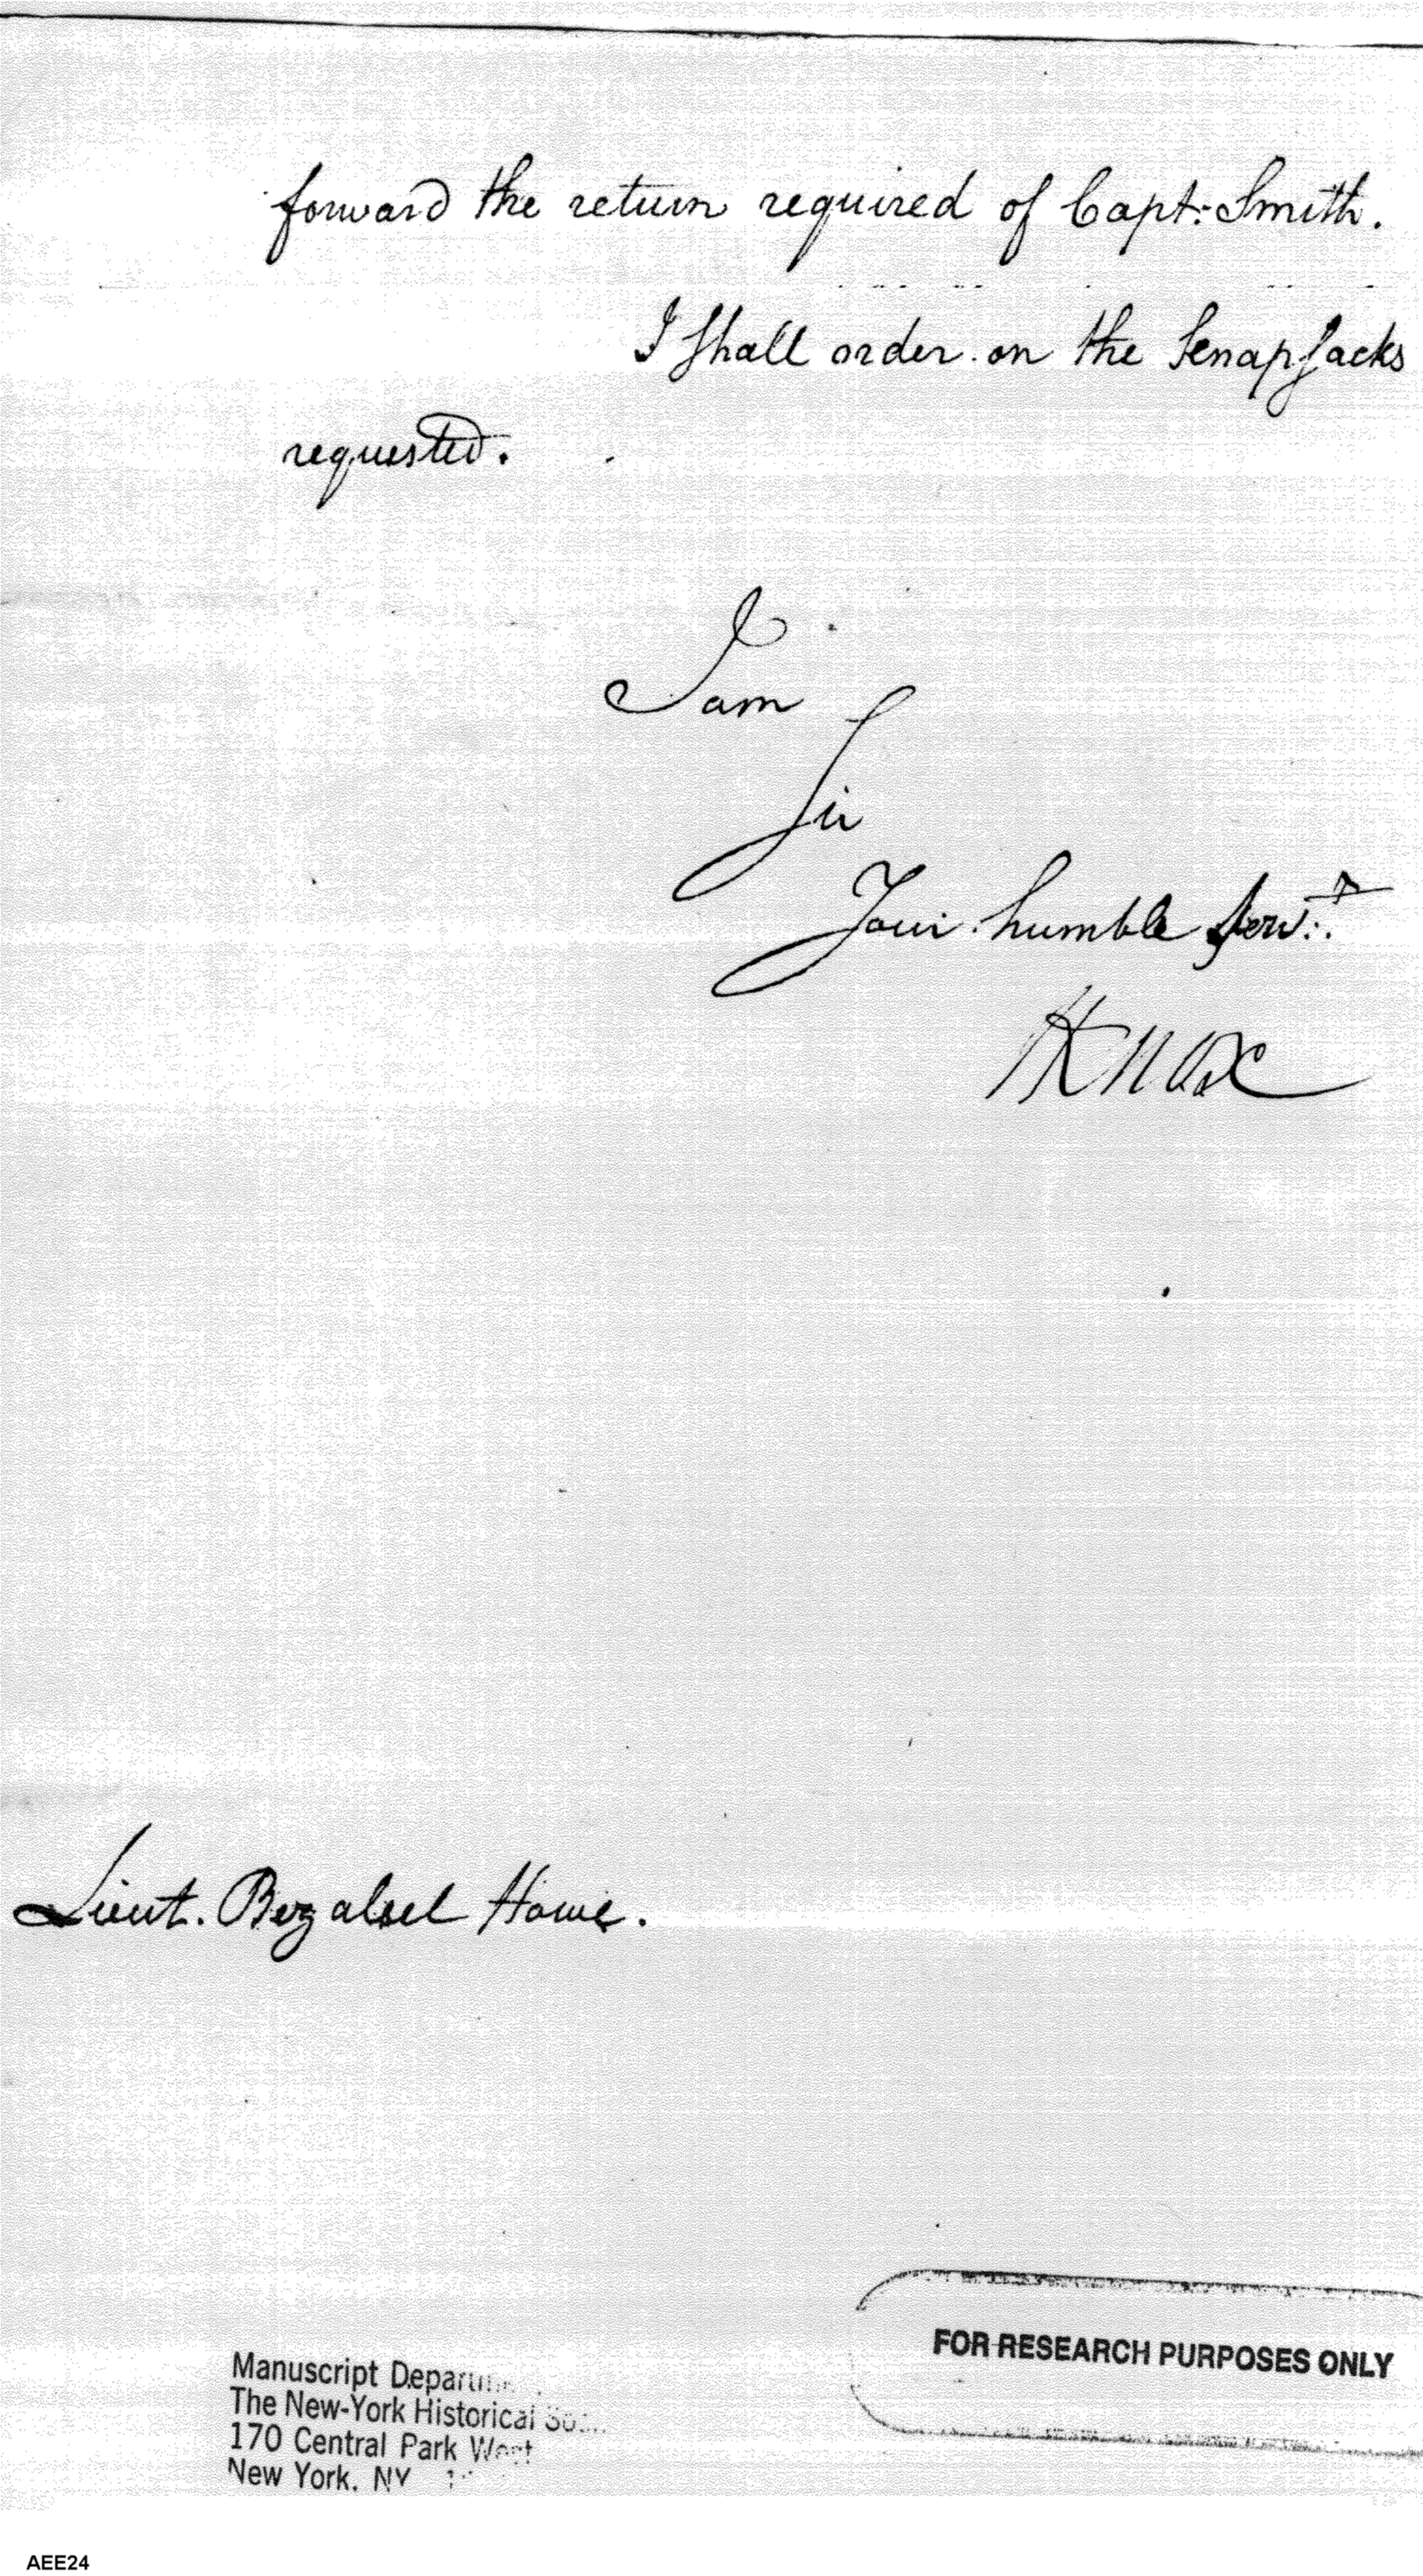 forward the return required of Capt: Smith.
I shall order on the Knapsacks
requested.
I am
Sir
Your humble Servt.
HKnox
Lieut. Bezaleel Howe.
FOR RESEARCH PURPOSES ONLY
Manuscript
The New-York Historical
170 Central Park West
New York, NY
AEE24